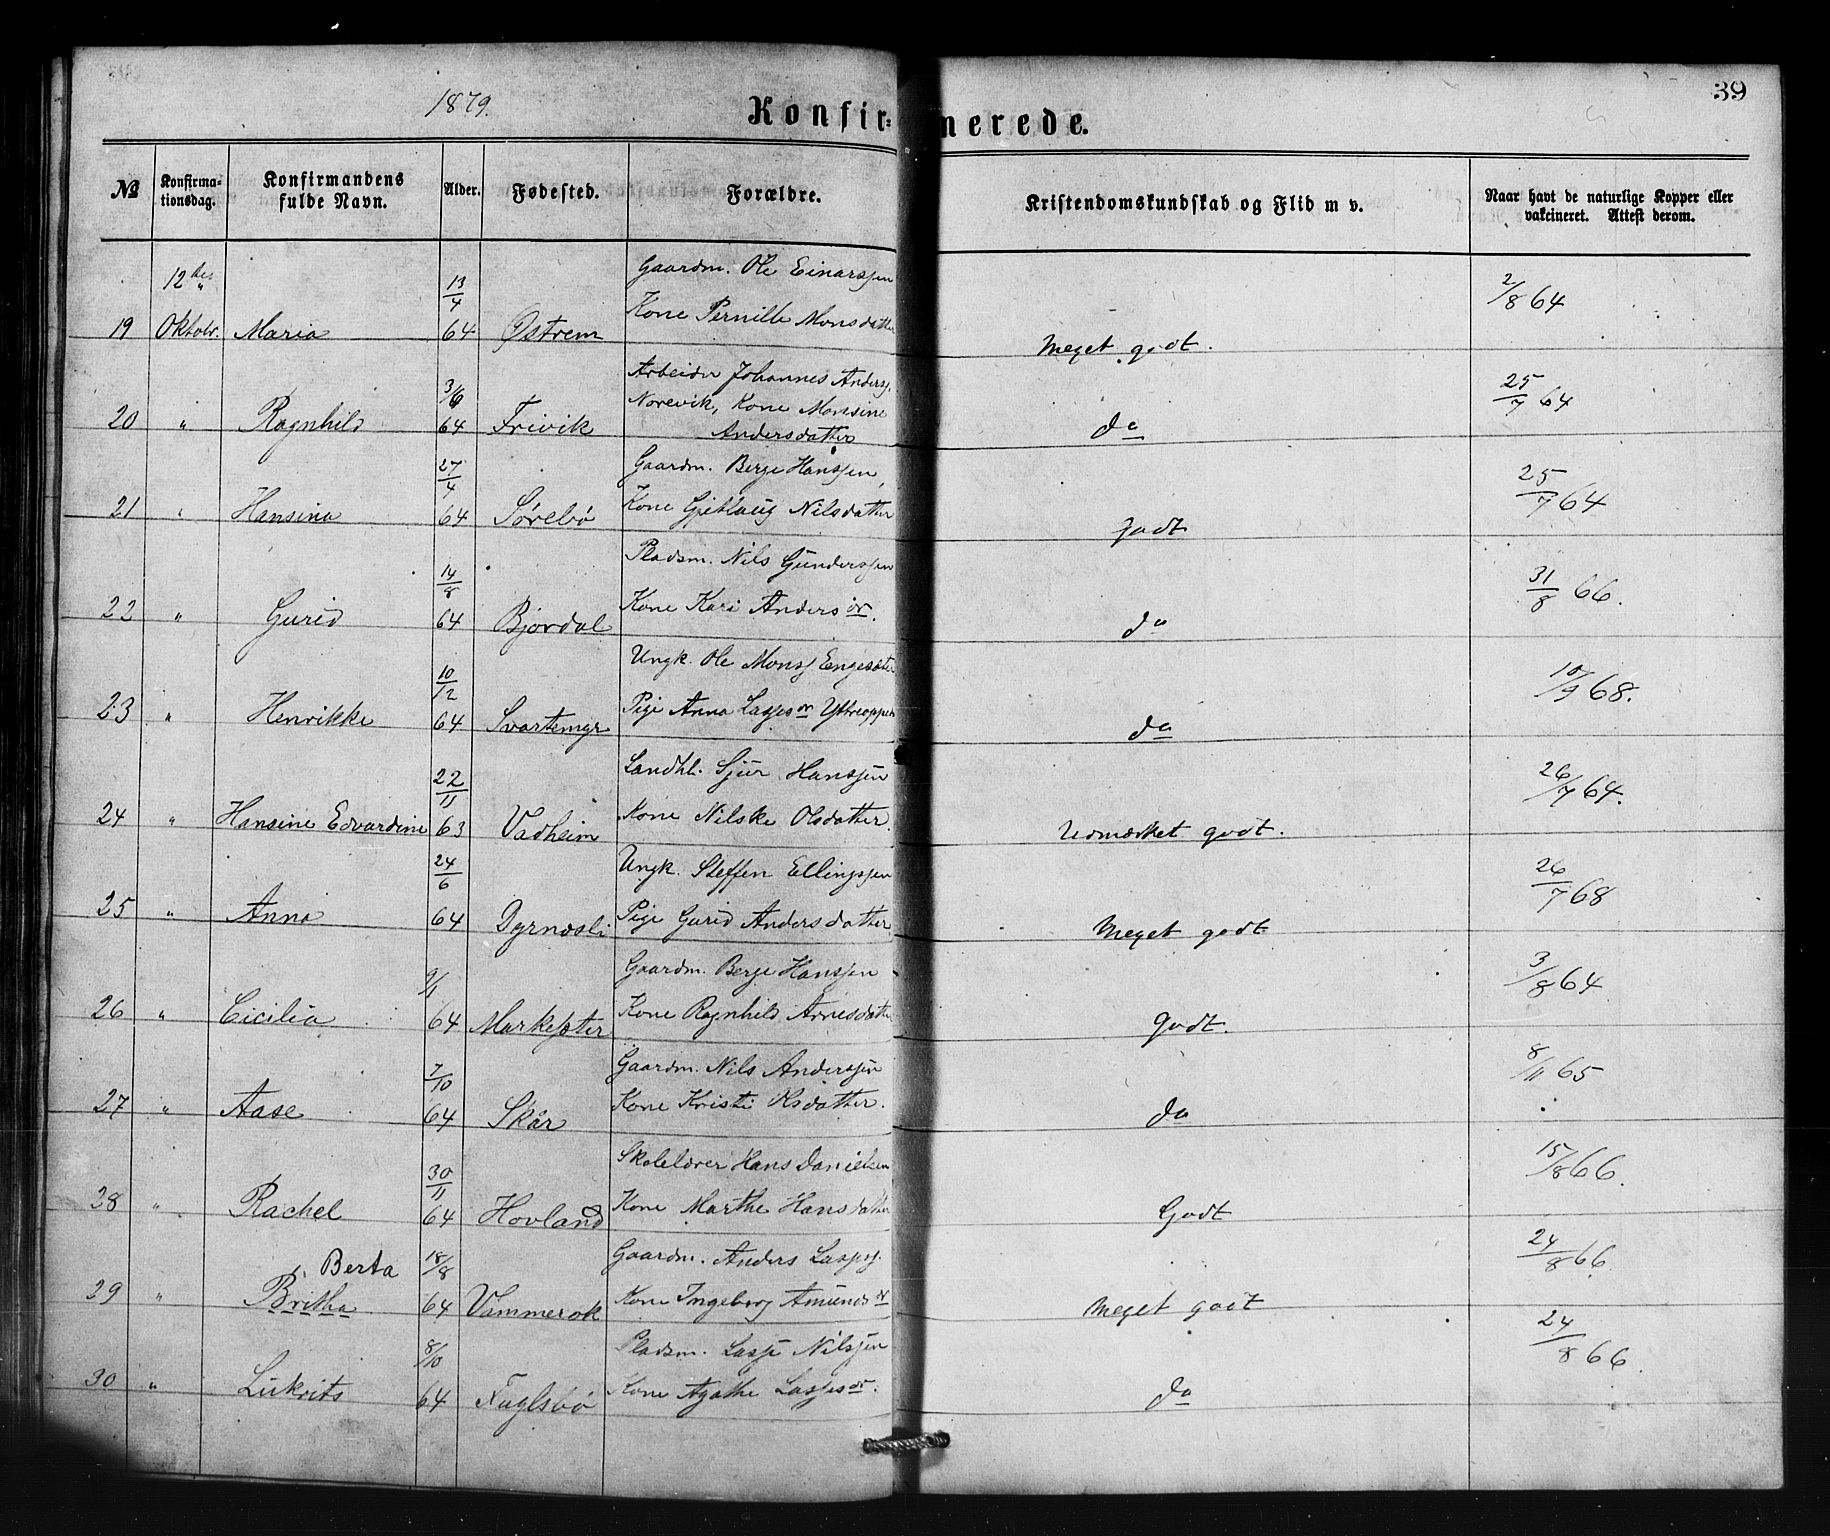 1879.
Konfir-
merede.
39
№
Konfirma-
tionsdag.
Konfirmandens
fulde Navn.
Alder.
Fødested.
Forældre.
Kristendomskundskab og Flid m v.
Naar havt de naturlige Kopper eller
vakcineret. Attest derom.
12 13/4 Gaardm. Ole Einarssen 2/8 64
19 Oktobr. Maria 64 Østrem Kone Pernille Monsdatter Meget godt.
3/6 Arbeider Johannes Anders. 25/7 64
Norevik, Kone Monsine
20 " Ragnhild 64 Frivik Andersdatter do
27/4 Gaardm. Berge Hanssen, 25/7 64
21 " Hansina 64 Sørebø Kone Gjetlaug Nilsdatter godt
14/8 Pladsm. Nils Gunderssen 31/8 66.
22 " Gurid 64 Bjordal Kone Kari Andersdr. do
10/12 Ungk. Ole Monss Engesæter 10/9 68.
23 " Henrikke 64 Svartemyr Pige Anna Lassesdr Ytreoppen do
22/11 Landhl. Sjur Hanssen 26/7 64.
24 " Hansine Edvardine 63 Vadheim Kone Nilske Olsdatter. Udmærket godt.
24/6 Ungk. Steffen Ellingssen 26/7 68
25 " Anna 64 Dyrnesli Pige Gurid Andersdatter. Meget godt
9/1 Gaardm. Berge Hanssen 3/8 64
26 " Cicilia 64 Markesæter Kone Ragnhild Arnesdatter Godt.
7/10 Gaardm. Nils Anderssen 8/11 65
27 " Aase 64 Skår Kone Kristi Olsdatter. do
30/11 Skolelærer Hans Danielsen 15/8 66.
28 " Rachel 64 Hovland Kone Marthe Hansdatter Godt
Berta 18/8 Gaardm. Anders Lasses. 24/8 66.
29 " Britha 64 Vammerok Kone Ingeborg Amundsdr Meget godt
8/10 Pladsm. Lasse Nilssen 24/8 66.
30 " Lukrits 64 Fuglsbø Kone Agathe Lassesdr. do